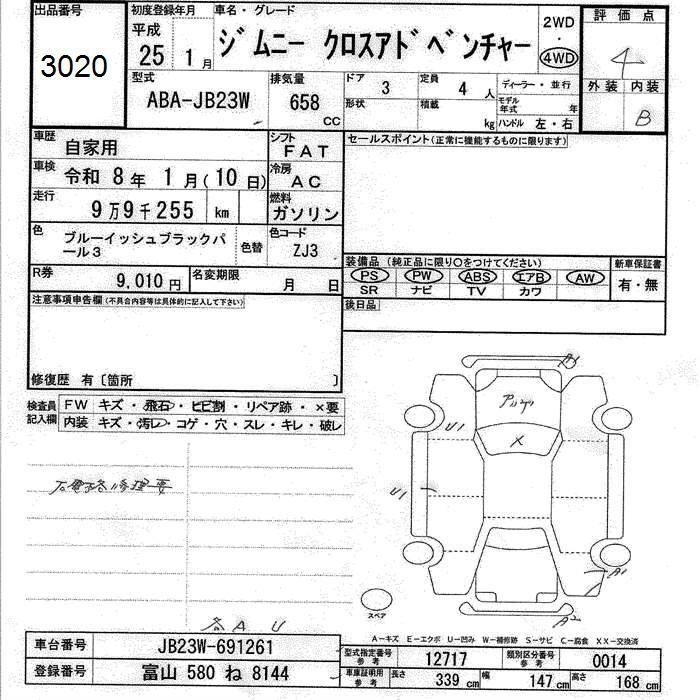 出品番号
3020
初度登録年月
平成
25 年 1 月
車名・グレード
ジムニー クロスアドベンチャー
2WD
・
4WD
評価点
4
外装 内装
B
型式
ABA-JB23W
排気量
658
CC
ドア
3
形状
定員
4 人
積載
kg
ディーラー・並行
モデル年式 年
ハンドル 左・右
車歴
自家用
シフト
FAT
車検
令和 8 年 1 月(10 日)
冷房
AC
走行
9 万 9 千 255 km
燃料
ガソリン
色
ブルーイッシュブラックパール3
色替
色コード
ZJ3
R券
9,010 円
名変期限
月 日
セールスポイント(正常に機能するものに限ります)
装備品(純正品に限り○をつけてください)
PS PW ABS エアB AW
SR ナビ TV カワ
新車保証書
有・無
後日品
注意事項申告欄(不具合内容等は具体的に記入して下さい)
修復歴 有〔箇所 〕
検査員記入欄
FW キズ・飛石・ヒビ割・リペア跡・×要
内装 キズ・汚レ・コゲ・穴・スレ・キレ・破レ
A1
U1
×
U1
A1
A2
スペア
各AU
A-キズ E-エクボ U-凹み W-補修跡 S-サビ C-腐食 XX-交換済
車台番号
JB23W-691261
登録番号
富山 580 ね 8144
型式指定番号
参考
12717
類別区分番号
参考
0014
車庫証明用
参考
長さ 339 cm 幅 147 cm 高さ 168 cm